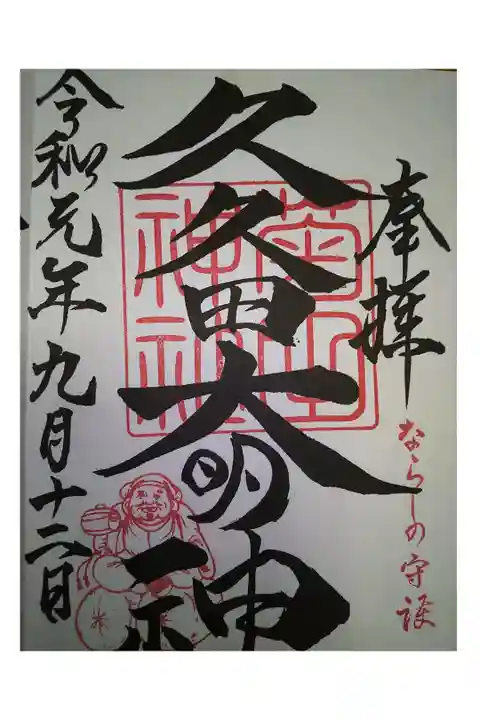 奉拝
ならしの守護
久久田大明神
菊田
神社
令和元年九月十二日